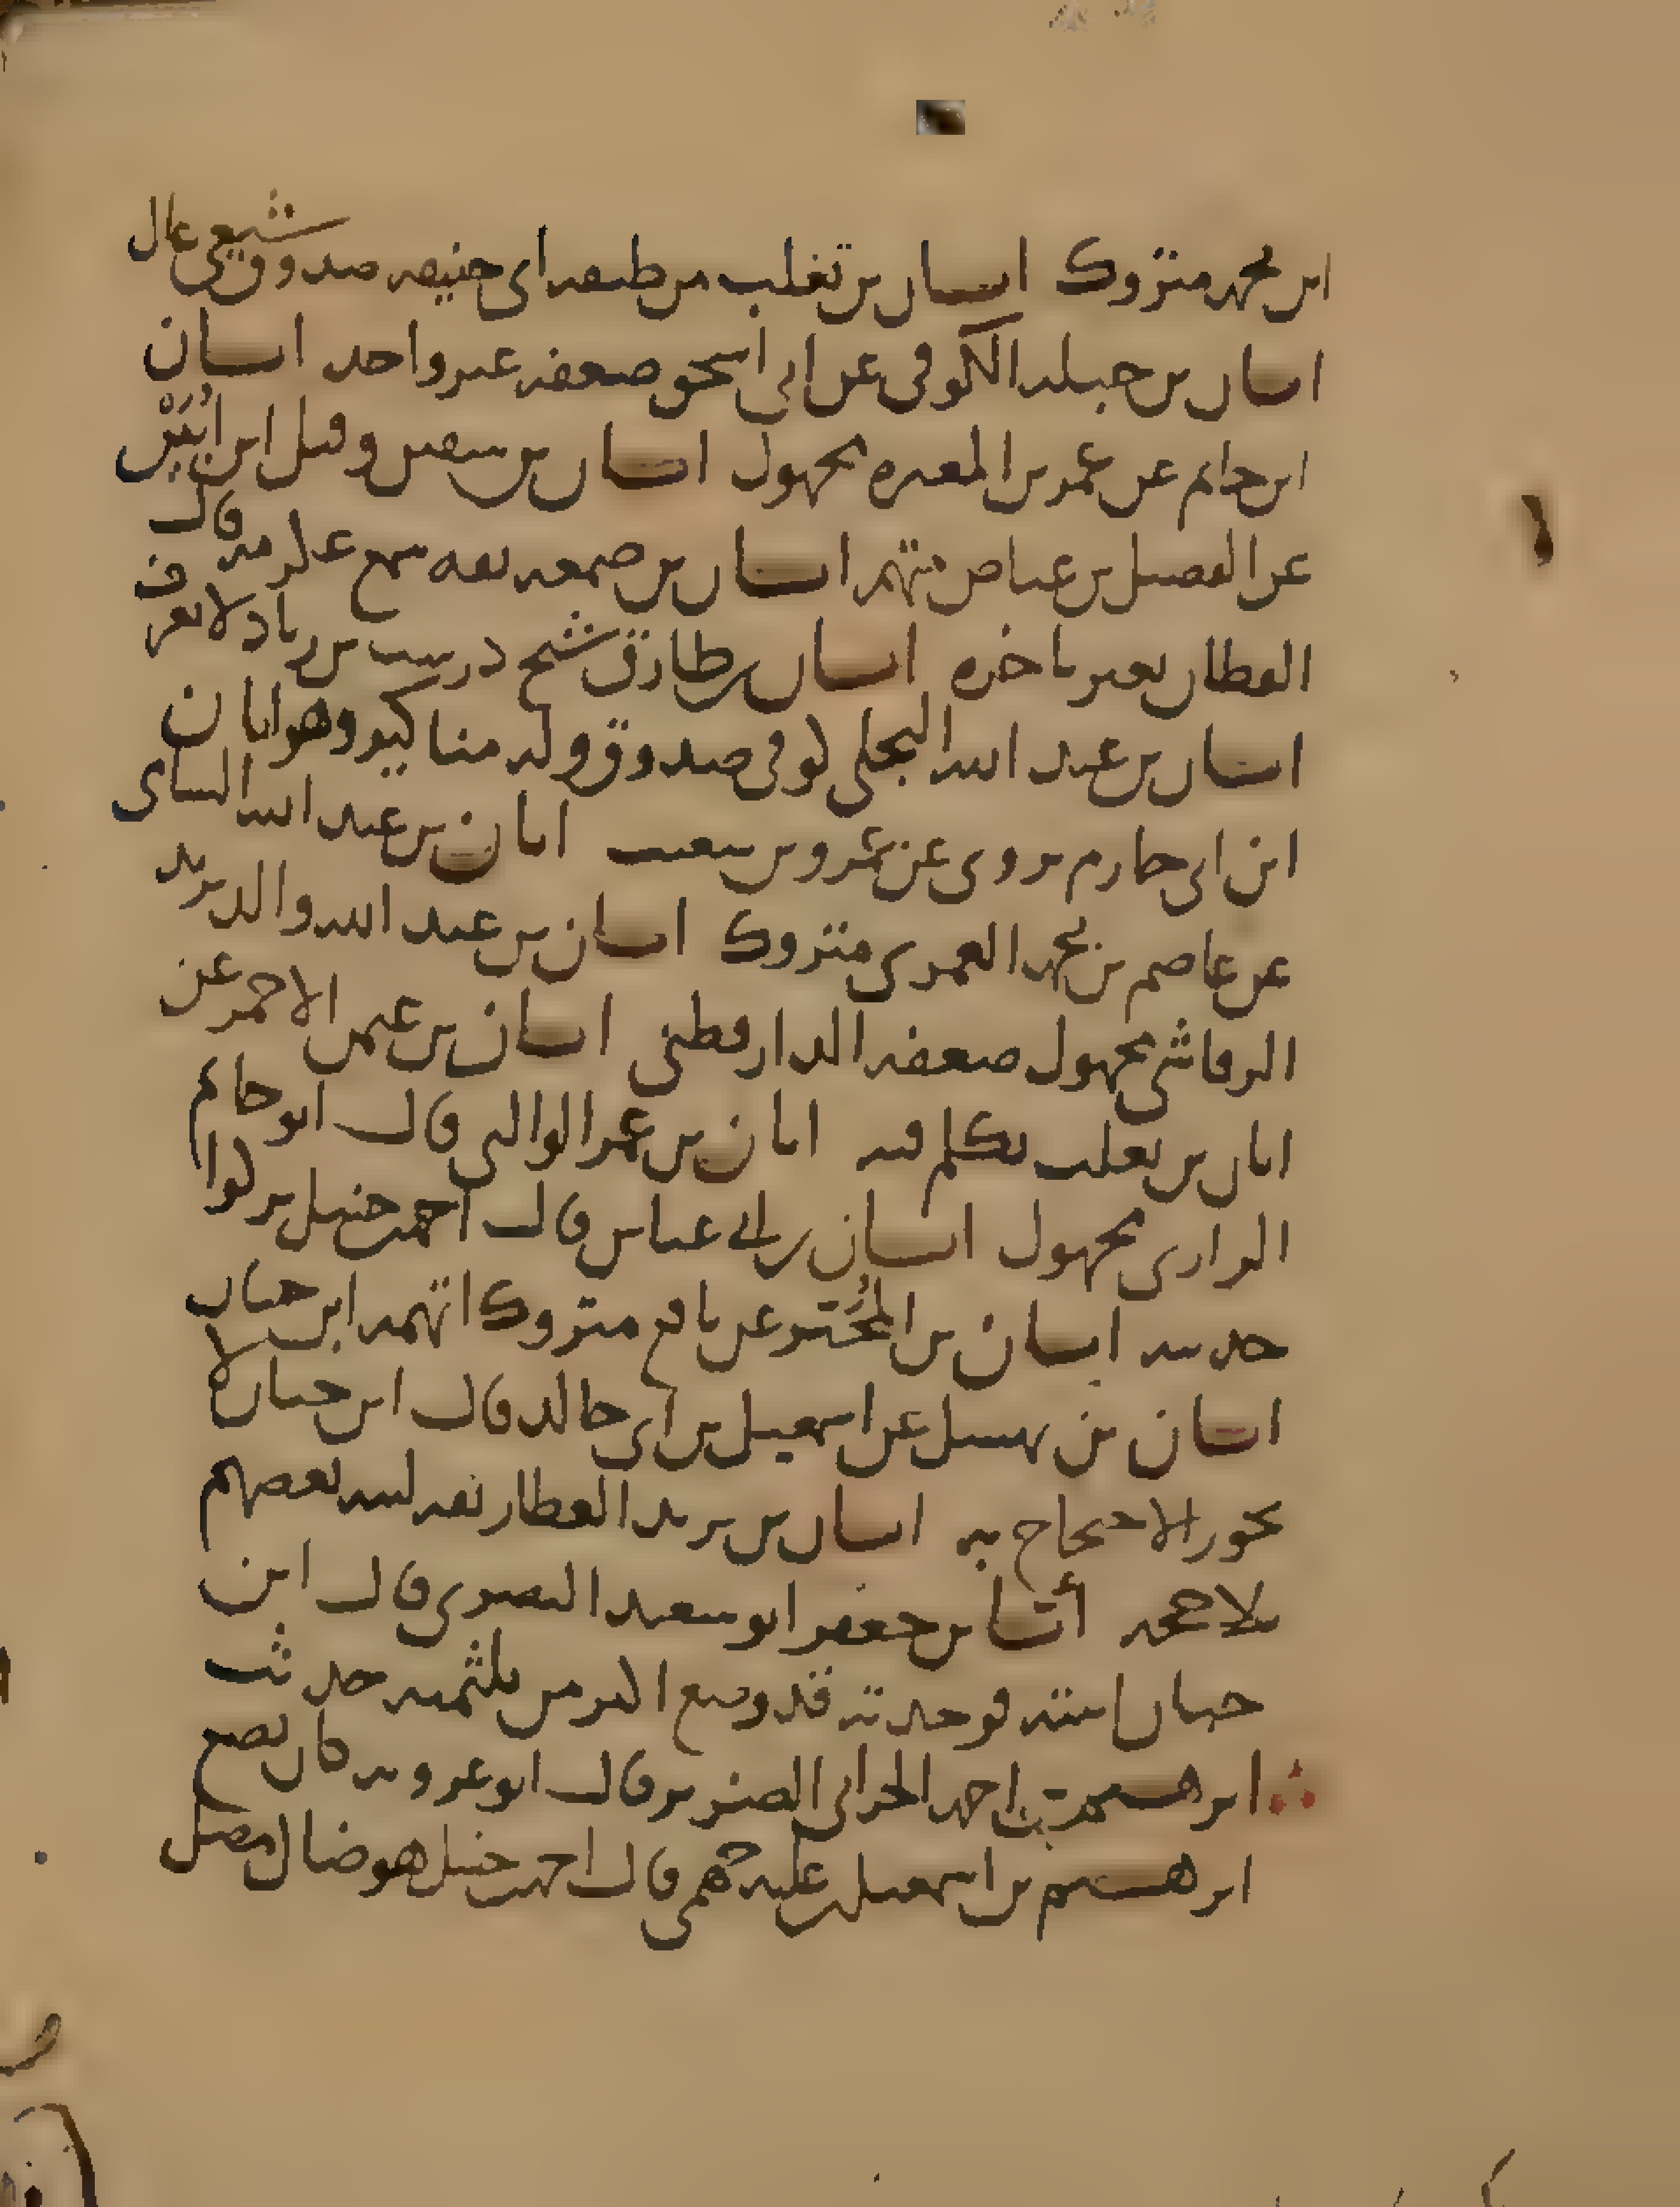 ابن محمد متروك ابان بن تغلب من طبقة ابي حنيفة صدوق شيعي غال
ابان بن جبلة الكوفي عن ابي اسحق ضعفه غير واحد ابان
ابن حاتم عن عمر بن المغيرة مجهول ابان بن سفين وقيل ابن ابين
عن الفضيل بن عياض متهم ابان بن صمعة ثقة سمع عكرمة قال
القطان تغير باخره ابان بن طارق شيخ درست بن زياد لا يعرف
ابان بن عبد الله البجلي كوفي صدوق وله مناكير وهو ابان
ابن ابي حازم يروي عن عمرو بن شعيب ابان بن عبد الله الشامي
عن عاصم بن محمد العمري متروك ابان بن عبد الله والد يزيد
الرقاشي مجهول ضعفه الدارقطني ابان بن عثمن الاحمر عن
ابان بن تغلب تكلم فيه ابان بن عمر الوالبي قال ابو حاتم
الرازي مجهول ابان بن ابي عياش قال احمد بن حنبل تركوا
حديثه ابان بن المحبر عن نافع متروك اتهمه ابن حبان
ابان بن نهشل عن اسمعيل بن ابي خالد قال ابن حبان لا
يجوز الاحتجاج به ابان بن يزيد العطار ثقة لينه بعضهم
بلا حجة أبا بن جعفر ابو سعيد البصري قال ابن
حبان اتيته فوجدته قد وضع اكثر من ثلثمية حديث
ابرهيم بن احمد الحراني الضرير قال ابو عروبة كان يضع
ابرهيم بن اسمعيل بن علية جهمي قال احمد بن حنبل هو ضال مضل